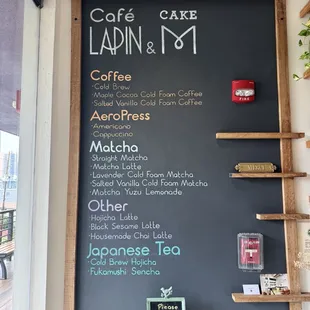 Café CAKE
LAPIN & M
Coffee
·Cold Brew
·Maple Cocoa Cold Foam Coffee
·Salted Vanilla Cold Foam Coffee
AeroPress
·Americano
·Cappuccino
Matcha
·Straight Matcha
·Matcha Latte
·Lavender Cold Foam Matcha
·Salted Vanilla Cold Foam Matcha
·Matcha Yuzu Lemonade
Other
·Hojicha Latte
·Black Sesame Latte
·Housemade Chai Latte
Japanese Tea
·Cold Brew Hojicha
·Fukamushi Sencha
FIRE
Please